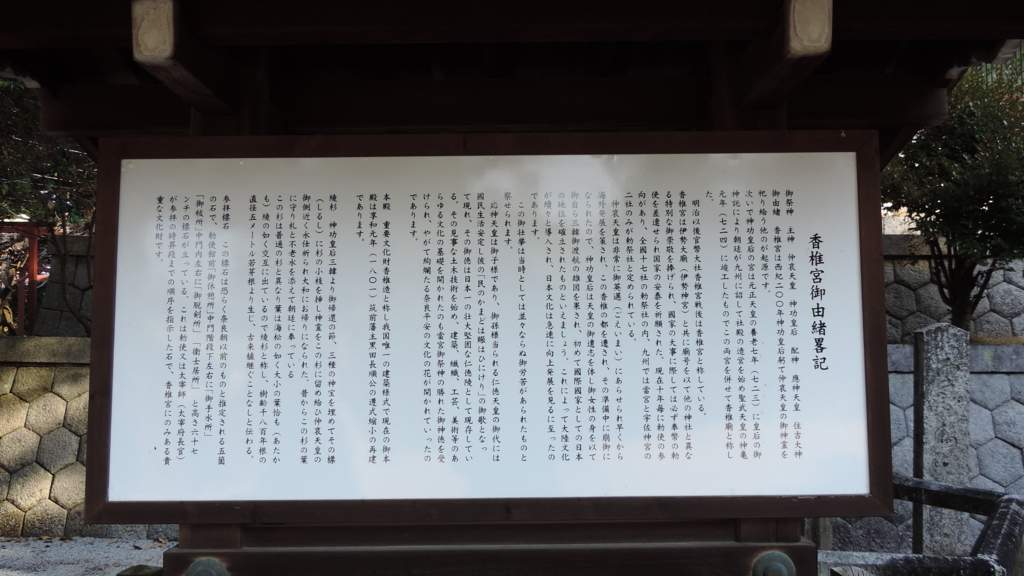 香椎宮御由緒畧記
御祭神　主神　仲哀天皇　神功皇后　配神　應神天皇　住吉大神
御由緒　香椎宮は西紀二〇〇年神功皇后躬て仲哀天皇の御神霊を
祀り給う他のが起源です。
次いで神功皇后の宮は元正天皇の養老七年（七二三）に皇后の御
神託により朝廷が九州に詔して社殿の造営を始め聖武天皇の神亀
元年（七二四）に竣工したものでこの両宮を併せて香椎廟と称し
た。
明治以後官幣大社香椎宮戦後は香椎宮と称している。
香椎宮は伊勢大廟（伊勢神宮）と共に廟号を以て他の神社と異な
る特別な御崇敬を捧げられ、國家の大事に際しては必ず奉幣の勅
使を差遣せられ国家の安泰を祈願された。現在十年毎に勅使の参
向があり、全國十七社の勅祭社の内、九州では當宮と宇佐神宮の
二社のみが勅祭社と定められている。
仲哀天皇は非常に御英邁（ごえいまい）にあらせられ早くから
海外発展を企策され、この香椎の都を遷され、その準備中に崩御に
なられたので、神功皇后は天皇の御遺志を体し御女性の身を以て
御自ら三韓御渡航の雄図を果され、初めて國際國家としての日本
の地位を確立されたものといえましょう。これによって大陸文化
が續々と導入され、日本文化は急速に向上発展を見るに至ったの
であります。
この御仕挙は当時としては並々ならぬ御労苦があられたものと
察せられます。
応神天皇は御子様であり、御孫様当られる仁徳天皇の御代には
國民生活安定し彼の「民のかまどは賑はひにけり」の御歌となっ
て現れ、その御徳は日本一の壮大堅固な仁徳陵として現存してい
る。その見事な土木技術を始め、建築、繊織、工芸、美術等のあ
らゆる文化の基礎を開かれたのも當宮御祭神の勝れた御神徳を受
けられ、やがて絢爛たる奈良平安の文化の花が開かれていったの
であります。
本殿　重要文化財香椎造と称し我国唯一の建築様式で現在の御本
殿は享和元年（一八〇一）筑前藩主黒田長順公の遵式縮小の再建
であります。
綾杉　神功皇后三韓より御帰還の節、三種の神宝を埋めてその標
（しるし）に杉の小枝を挿し神霊をこの杉に留め給ひ仲哀天皇の
御側近く永仕祈られ大本にお帰りになられた。昔からこの杉の葉
に守り札と不老水を添えて朝廷に奉っている
この杉は普通の杉と異なり葉は海松の如く大小の葉恰も（あたか
も）綾の如く交互に出ているので綾杉と称し、樹齢千八百年根の
直径五メートル根芽根より生し、古来植継ぐことなしと伝わる。
参拝標石　この標石は恐らく奈良朝以前のものと推定される五箇
の石で、勅使館前「御休憩所」中門階段下左右に「御手水所」
「御祓所」中門内左右に「御脱剣所」、「衛士居所」と高さ六十セ
ンチの標石が立っている。これは勅使又は太宰師（太宰府長官）
が参拝の時昇段までの順序を指示した石で、香椎宮にのみある貴
重な文化財です。